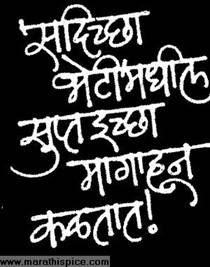 सदिच्छा
भेटीमधील
सुप्त इच्छा
मागाहून
कळतात!
www.marathispice.com